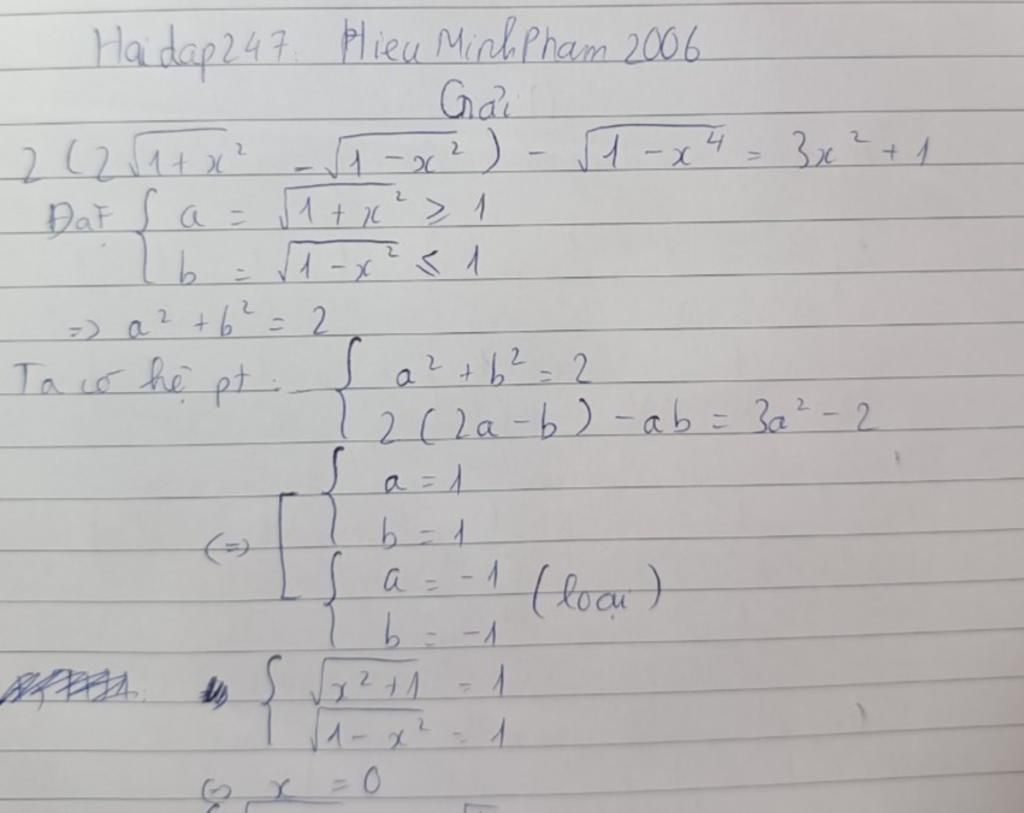 Hoidap247. Hieu Minh Pham 2006
Giải
2 ( 2√(1+x²) - √(1-x²) ) - √(1-x⁴) = 3x² + 1
Đặt { a = √(1+x²) ≥ 1
b = √(1-x²) ≤ 1
=> a² + b² = 2
Ta có hệ pt: { a² + b² = 2
2 ( 2a - b ) - ab = 3a² - 2
(=) [ { a = 1
b = 1
{ a = -1 (loại)
b = -1
{ √(x²+1) = 1
√(1-x²) = 1
(=) x = 0